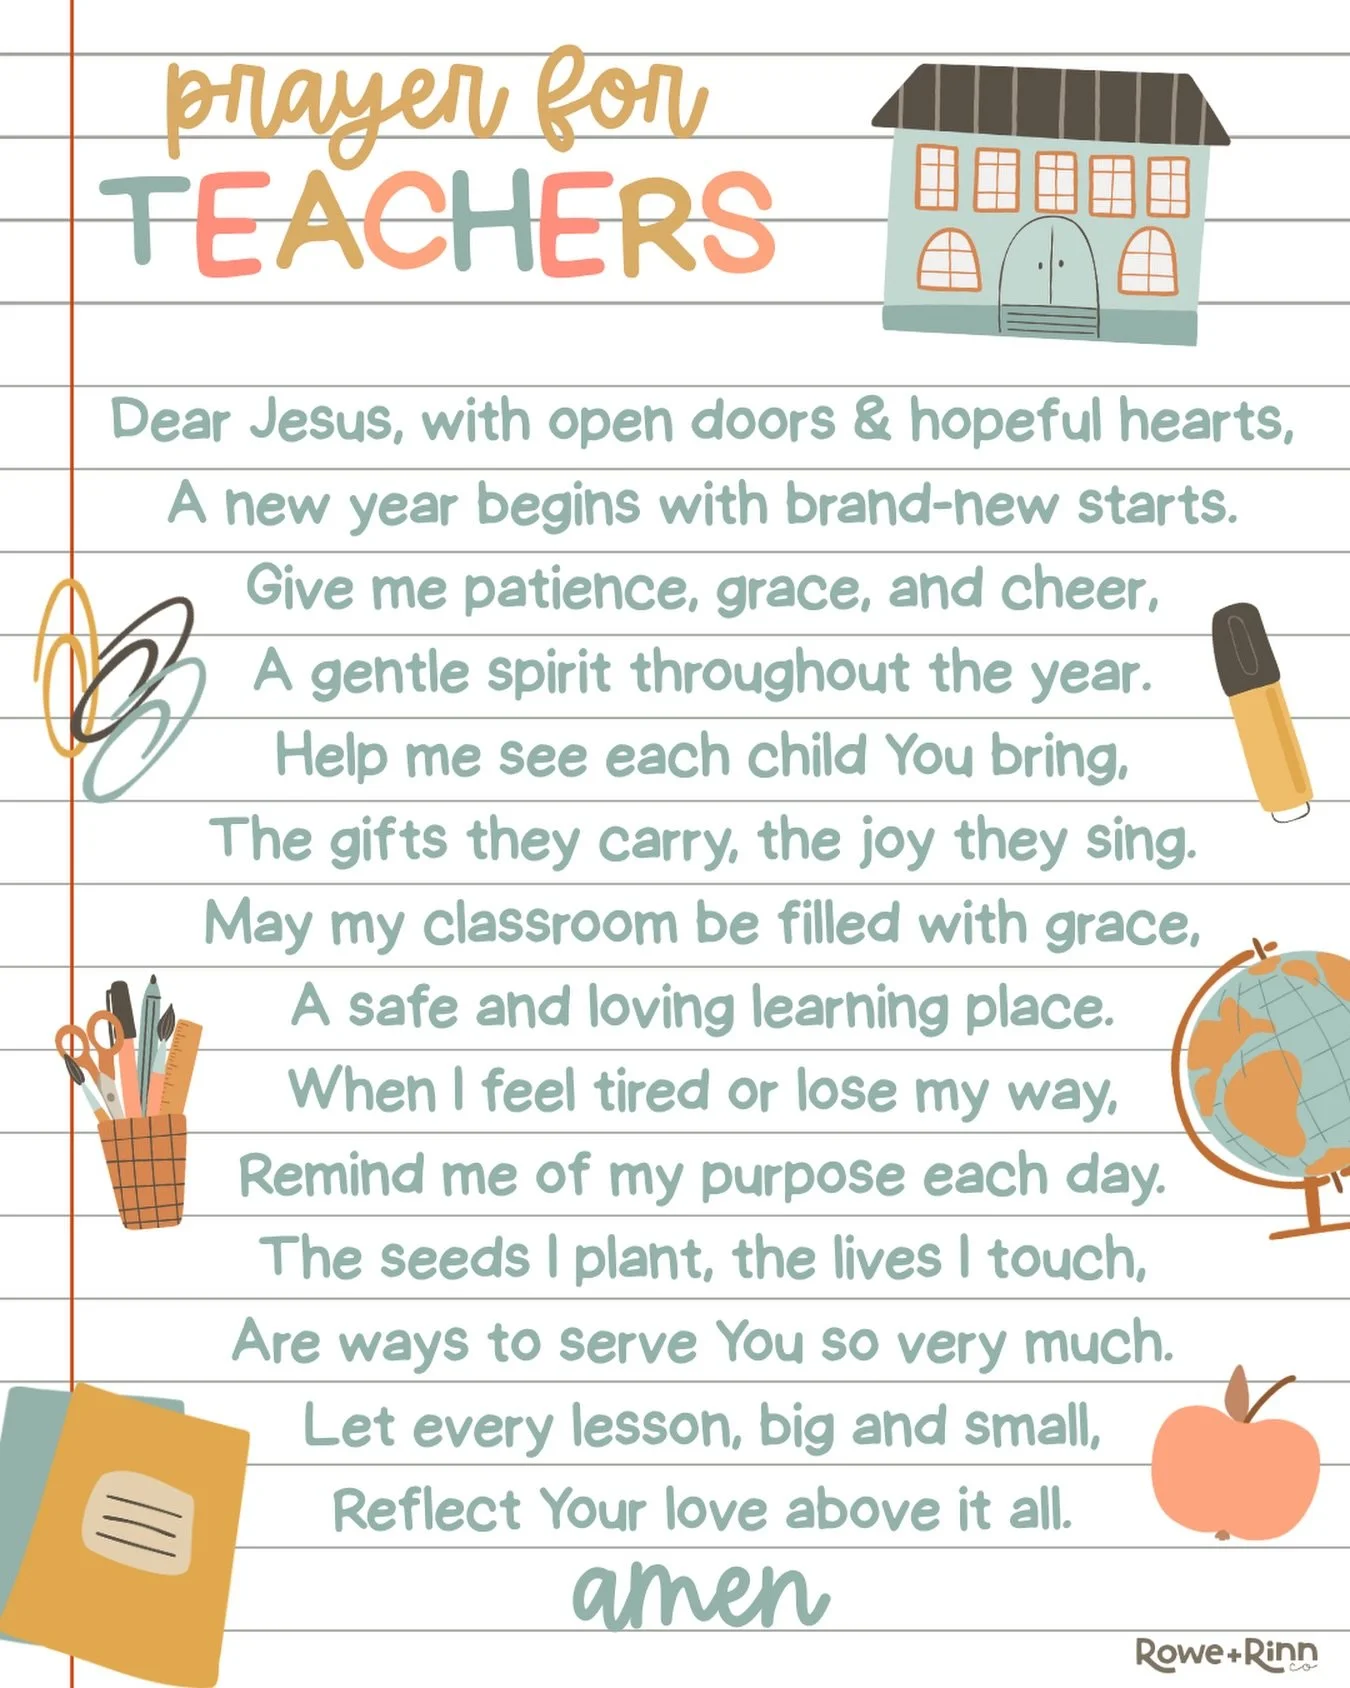 prayer for
TEACHERS
Dear Jesus, with open doors & hopeful hearts,
A new year begins with brand-new starts.
Give me patience, grace, and cheer,
A gentle spirit throughout the year.
Help me see each child You bring,
The gifts they carry, the joy they sing.
May my classroom be filled with grace,
A safe and loving learning place.
When I feel tired or lose my way,
Remind me of my purpose each day.
The seeds I plant, the lives I touch,
Are ways to serve You so very much.
Let every lesson, big and small,
Reflect Your love above it all.
amen
Rowe+Rinn
co